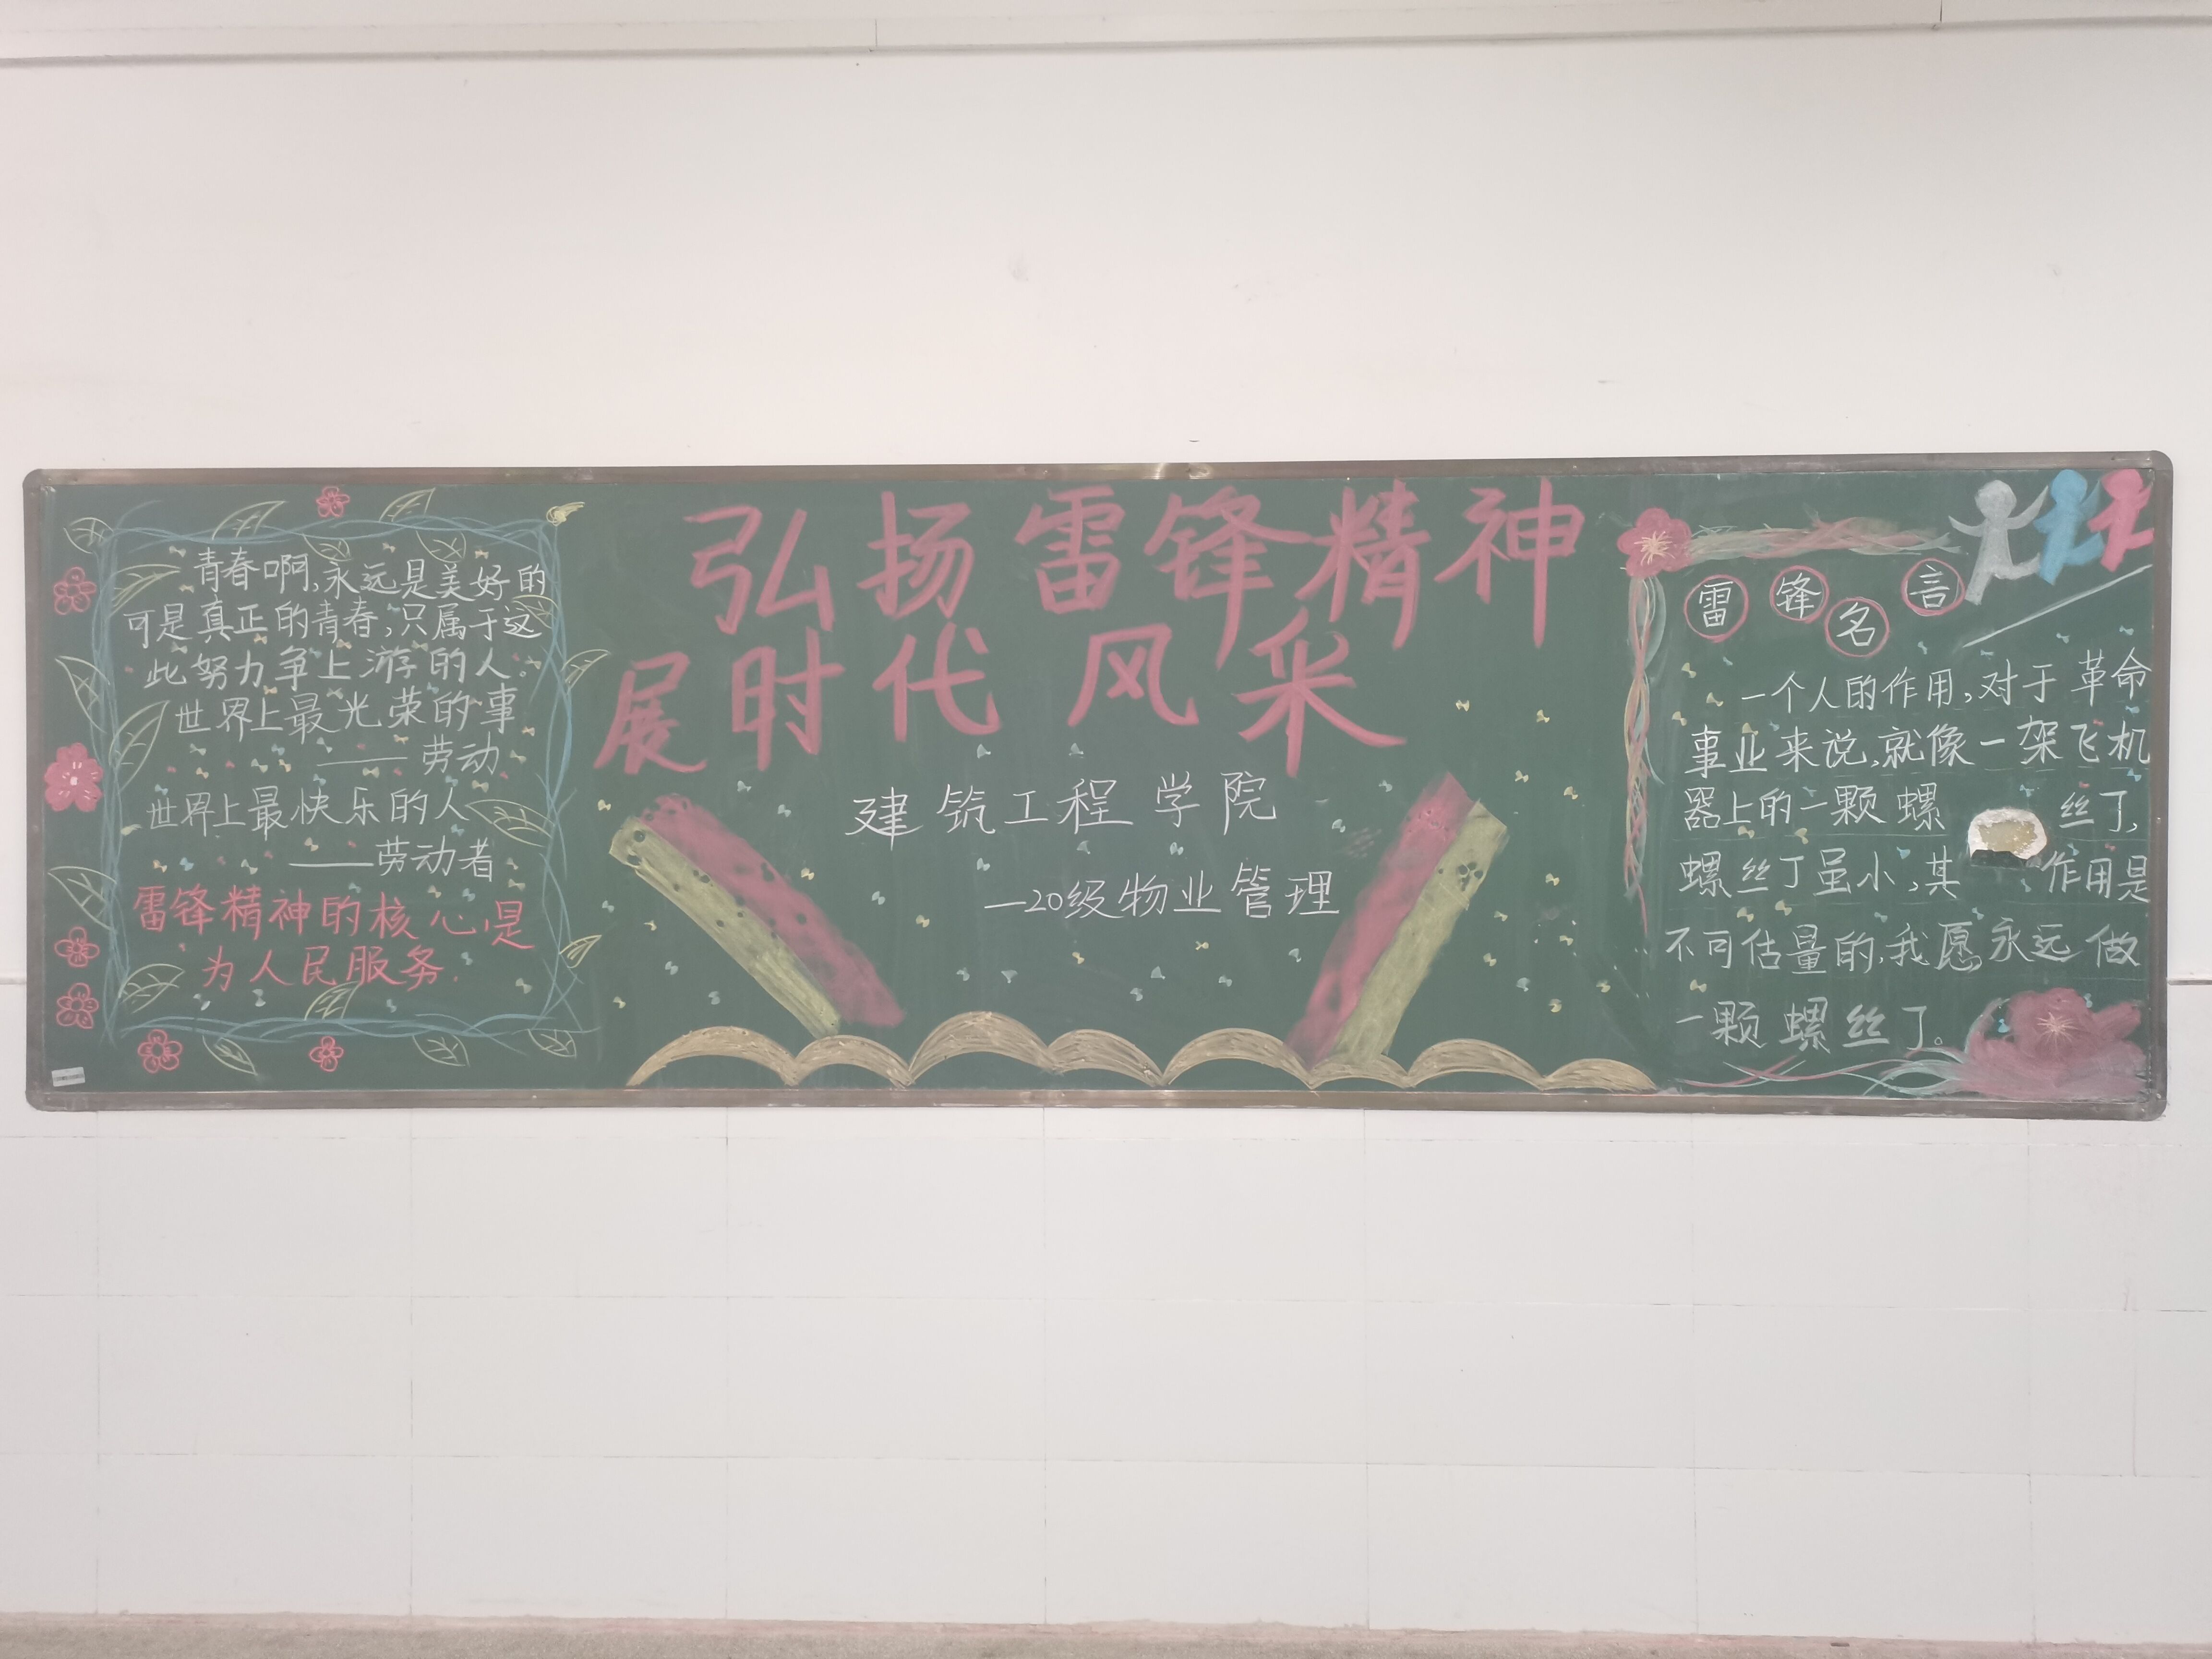 青春啊,永远是美好的
可是真正的青春,只属于这
此努力争上游的人.
世界上最光荣的事
——劳动
世界上最快乐的人
——劳动者
雷锋精神的核心是
为人民服务.
弘扬雷锋精神
展时代风采
建筑工程学院
—20级物业管理
雷锋名言
一个人的作用,对于革命
事业来说,就像一架飞机
器上的一颗螺丝丁,
螺丝丁虽小,其作用是
不可估量的,我愿永远做
一颗螺丝丁。